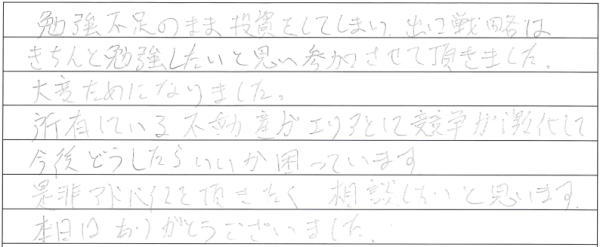 勉強不足のまま投資をしてしまい、出口戦略は
きちんと勉強したいと思い参加させて頂きました。
大変ためになりました。
所有している不動産がエリアとして競争が激化して
今後どうしたらいいか困っています
是非アドバイスを頂きたく 相談したいと思います。
本日はありがとうございました。